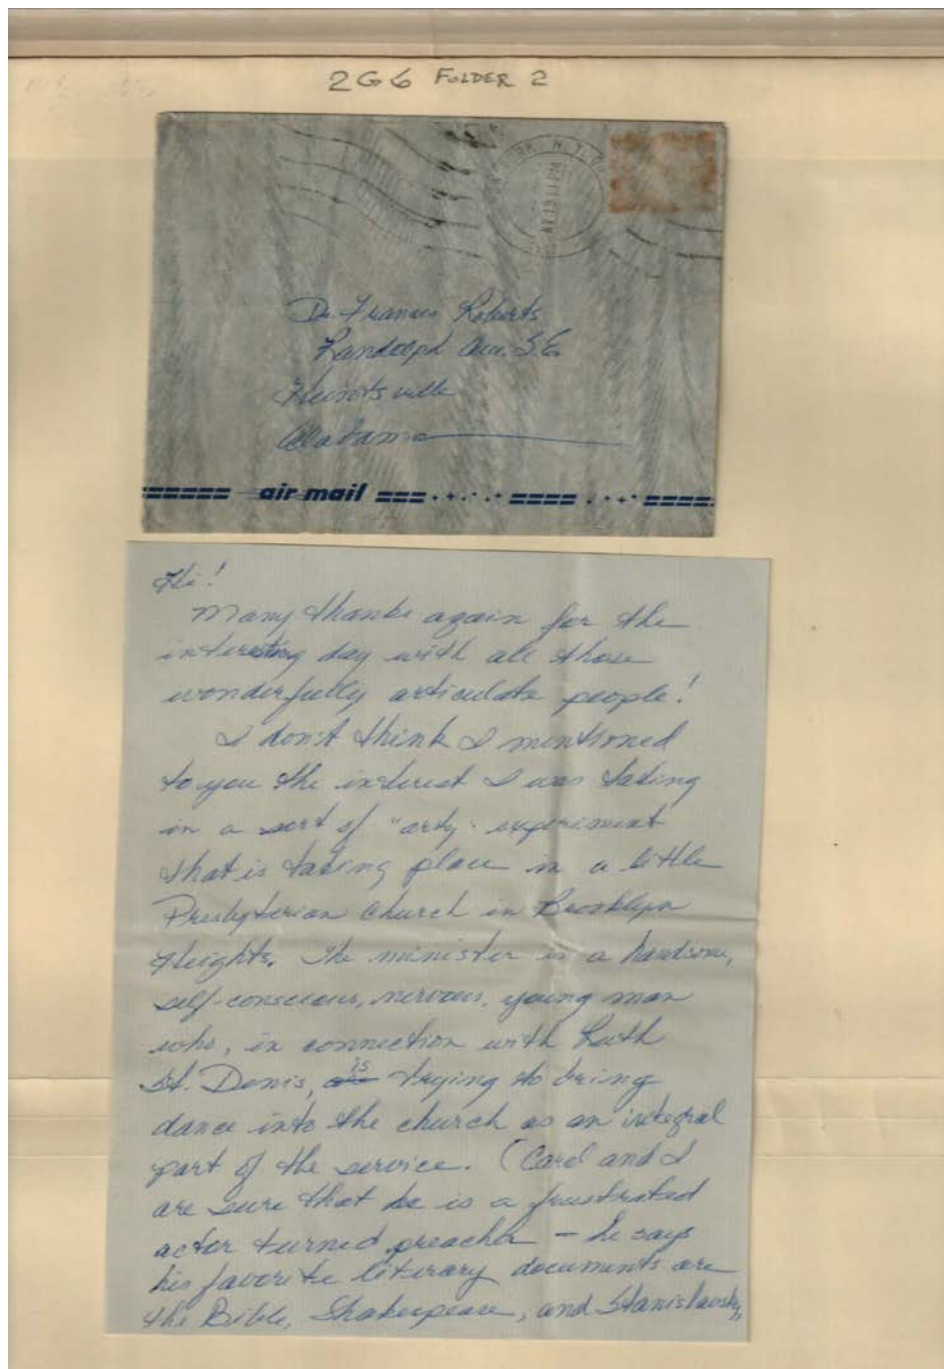 2G6 FOLDER 2
YORK, N.Y.
11 PM
Dr. Frances Roberts
Randolph Ave. S.E.
Huntsville
Alabama
air mail
Hi!
Many thanks again for the
interesting day with all those
wonderfully articulate people!
I don't think I mentioned
to you the interest I was taking
in a sort of "arty" experiment
that is taking place in a little
Presbyterian Church in Brooklyn
Heights. The minister is a handsome,
self-conscious, nervous, young man
who, in connection with Ruth
St. Denis, is trying to bring
dance into the church as an integral
part of the service. (Carl and I
are sure that he is a frustrated
actor turned preacher – he says
his favorite literary documents are
the Bible, Shakespeare, and Stanislavsky,